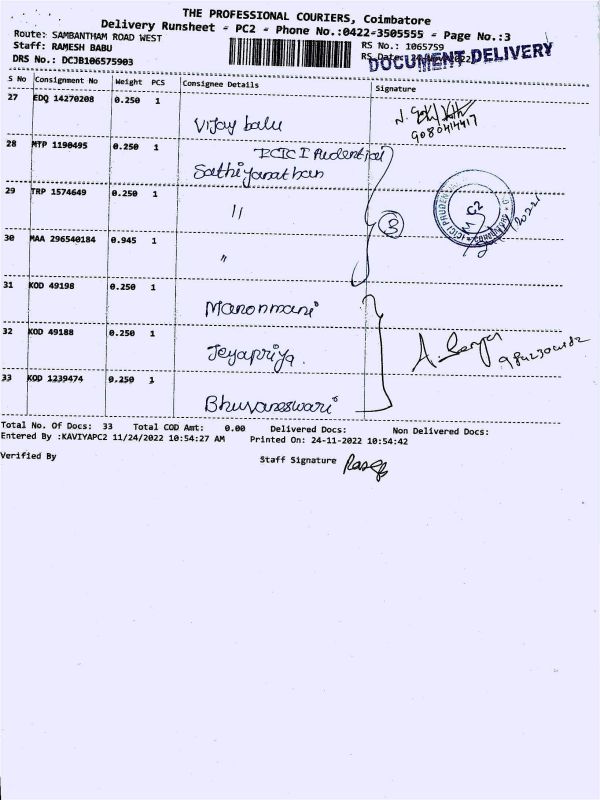 THE PROFESSIONAL COURIERS, Coimbatore
Delivery Runsheet - PC2 - Phone No.:0422-3505555 - Page No.:3
Route: SAMBANTHAM ROAD WEST
RS No.: 1065759
Staff: RAMESH BABU
DOCUMENT DELIVERY
DRS No.: DCJB106575903
S No Consignment No Weight PCS Consignee Details Signature
27 EDQ 14270208 0.250 1
Vijay balu
28 MTP 1190495 0.250 1
ICICI Prudential
Sathiyanathan
29 TRP 1574649 0.250 1
"
3
30 MAA 296540184 0.945 1
"
31 KOD 49198 0.250 1
Manonmani
32 KOD 49188 0.250 1
Jeyapriya.
33 KOD 1239474 0.250 1
Bhuvaneswari
Total No. Of Docs: 33 Total COD Amt: 0.00 Delivered Docs: Non Delivered Docs:
Entered By :KAVIYAPC2 11/24/2022 10:54:27 AM Printed On: 24-11-2022 10:54:42
Verified By Staff Signature